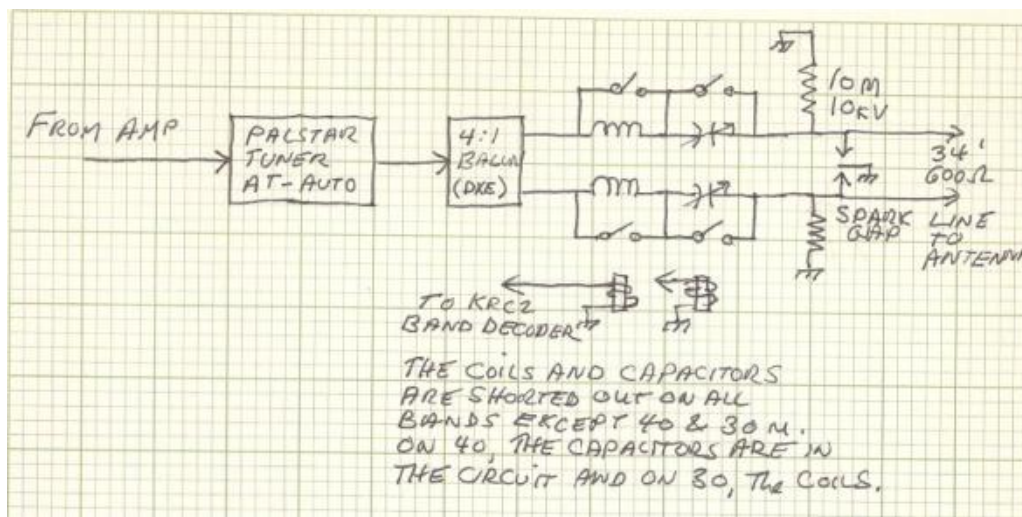 FROM AMP
PALSTAR
TUNER
AT-AUTO
4:1
BALUN
(DXE)
10M
10KV
34'
600Ω
LINE
TO
ANTENNA
SPARK
GAP
TO KRC2
BAND DECODER
THE COILS AND CAPACITORS
ARE SHORTED OUT ON ALL
BANDS EXCEPT 40 & 30 M.
ON 40, THE CAPACITORS ARE IN
THE CIRCUIT AND ON 30, The COILS.